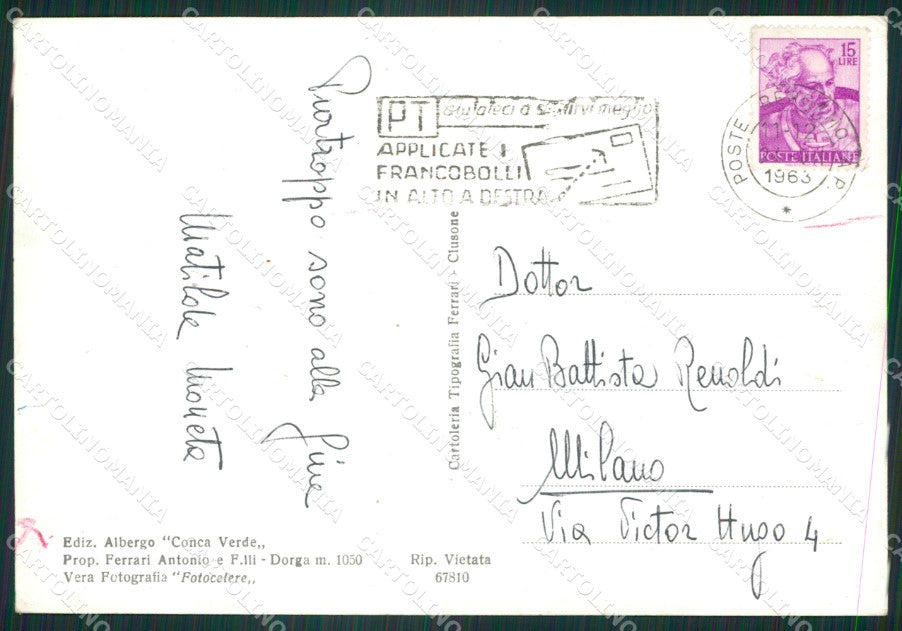 Purtroppo sono alla fine
Matilde Moneta
PT
aiutateci a servirvi meglio
APPLICATE I
FRANCOBOLLI
IN ALTO A DESTRA
15
LIRE
POSTE ITALIANE
POSTE
1963
Cartoleria Tipografia Ferrari - Clusone
Dottor
Gian Battista Renoldi
Milano
Via Victor Hugo 4
Ediz. Albergo "Conca Verde„
Prop. Ferrari Antonio e F.lli - Dorga m. 1050
Vera Fotografia "Fotocelere„
Rip. Vietata
67810
CARTOLINOMANIA